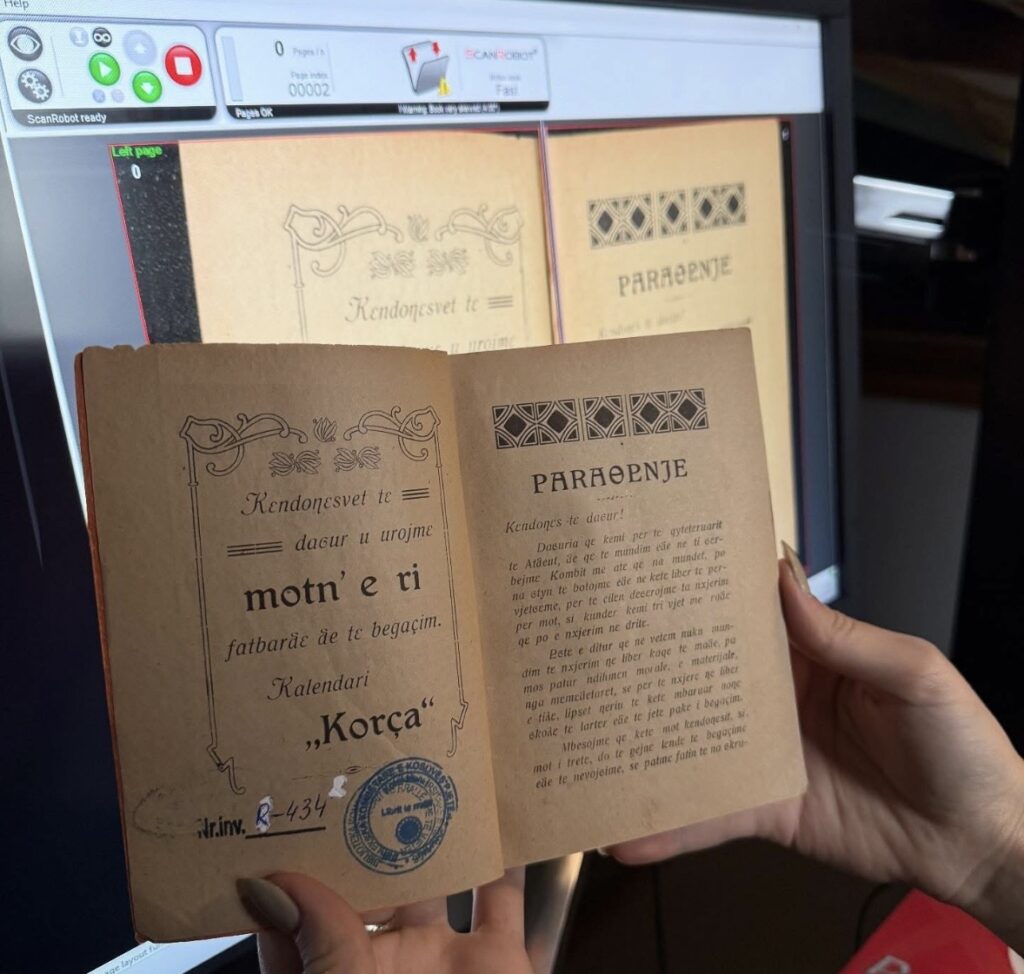 Help
0 Pages / h
Page index
00002
SCANROBOT
Fast
ScanRobot ready
Pages OK
Left page
0
Kεndoηεsvet tε
u urojmε
PARAΘENJE
Kεndoηεsvet tε
daσur u urojmε
motn' e ri
fatbarδε δε tε begaçim.
Kalendari
„Korça“
Nr.inv. R-434
PARAΘENJE
Kεndoηεs tε daσur!
Daσuria qe kemi per te qyteteruarit
te Atδeut, δe qe te mundim eδe ne ti σer-
bejme Kombit me ate qe na mundet, po
na σtyn te botojme eδe ne kete liber te per-
vjetσeme, per te cilen deσerojme ta nxjerim
per mot, si kunder kemi tri vjet me raδe
qe po e nxjerim ne drite.
Eσte e ditur qe ne vetem nuku mun-
dim te nxjerim ηe liber kaqe te maδe, po
mos patur ndihmen morale, e materijale,
nga memeδetaret, se per te nxjere ηe liber
e tile, lipset ηeriu te kete mbaruar noηe
σkole te larter eδe te jete pake i begaçim.
Mbesojme qe kete mot kendoηesit, si
mot i trete, do te gejne lende te begaçime
eδe te nevojσme, se patme fatin te na σkru-